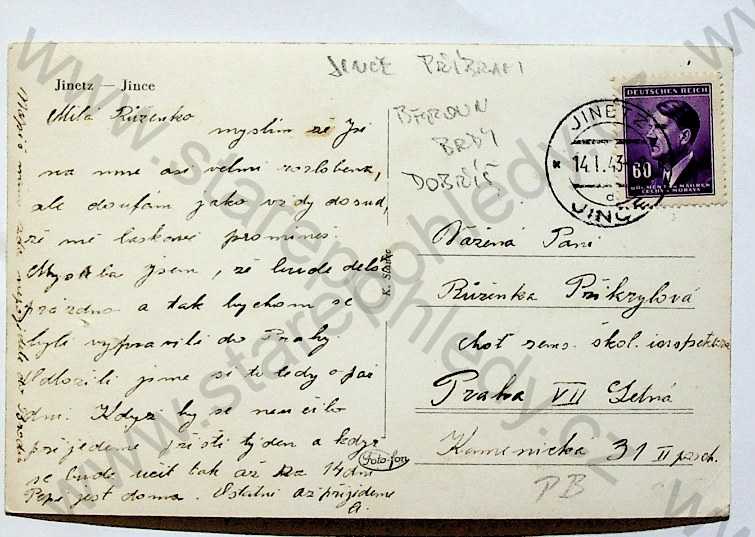 JINCE PŘÍBRAM
Jinetz — Jince
BEROUN
BRDY
DOBŘÍŠ
DEUTSCHES REICH
60
BÖHMEN u. MÄHREN
ČECHY a MORAVA
JINETZ
14.I.43
d
JINCE
Milá Růženko
myslím že Jsi
na mne asi velmi rozlobena,
ale doufám jako vždy dosud,
že mě laskavě promineš.
Myslila jsem, že bude delší
prázdno a tak bychom se
byli vypravili do Prahy.
Odložili jsme si to tedy o pár
dní. Když by se neučilo
přijedeme příští týden a když
se bude učit tak až za 14 dní
Pepa jest doma. Ostatní až přijedeme
K. Sladec
Foto-fon
Vážená Paní
Růženka Přikrylová
choť zems. škol. inspektora
Praha VII Letná
Kamenická 31 II posch.
PB
www.starepohledy.cz